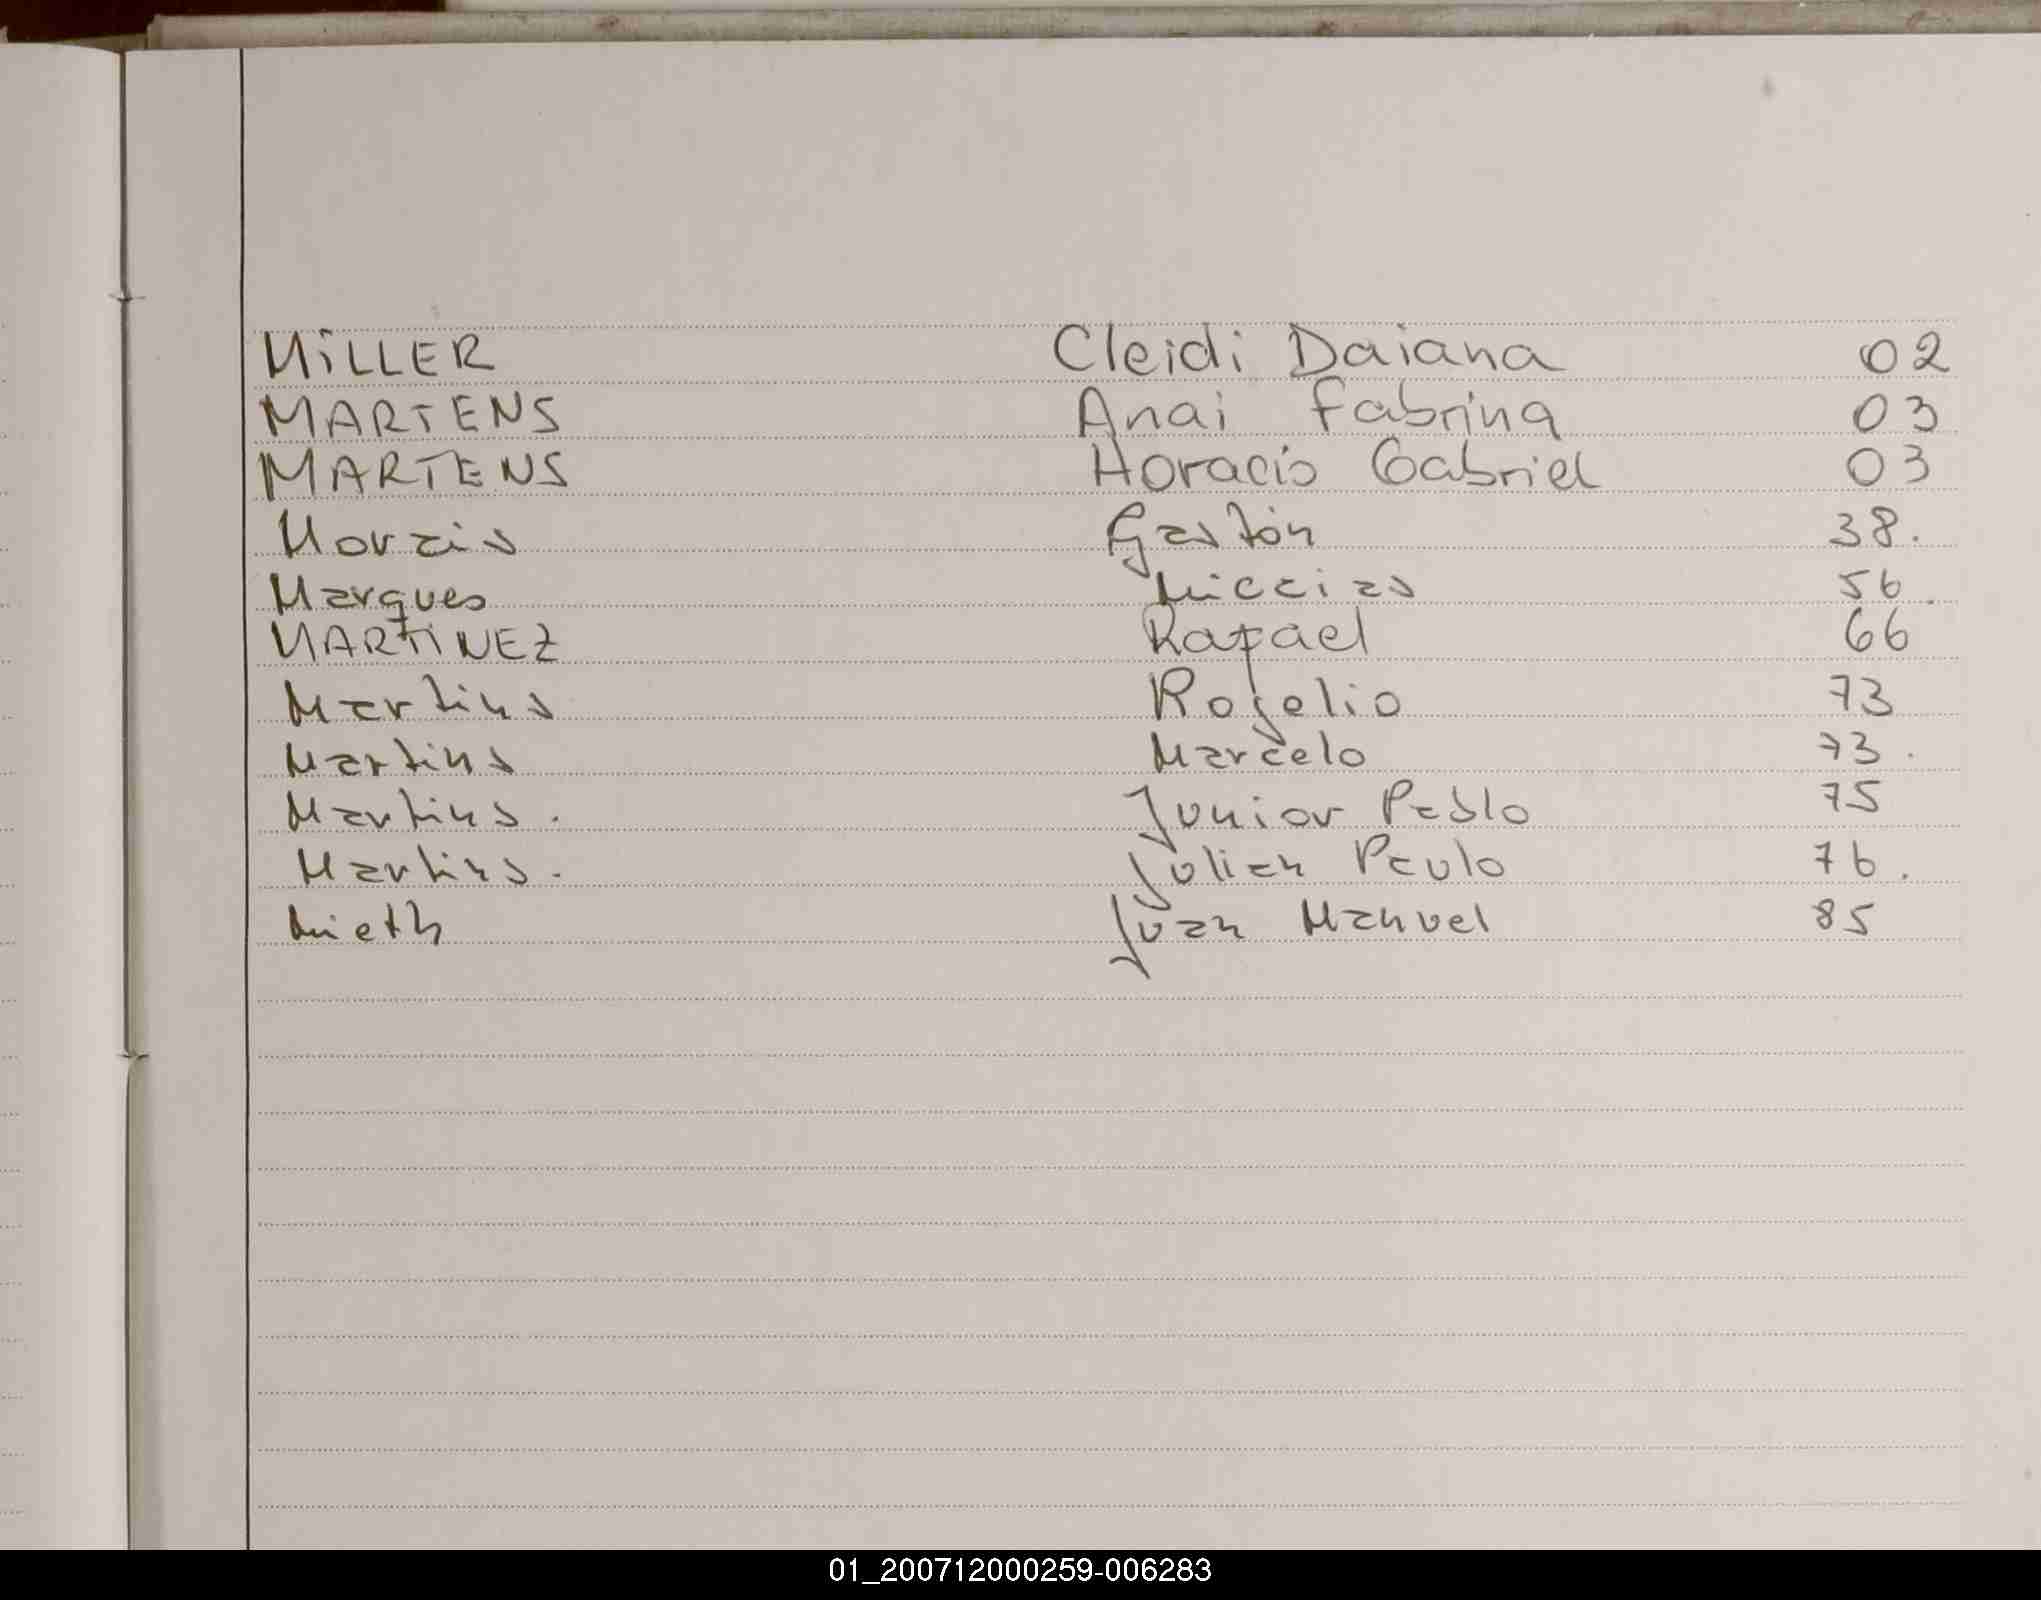 MiLLER Cleidi Daiana 02
MARTENS Anai Fabrina 03
MARTENS Horacio Gabriel 03
Morais Gastón 38.
Marques Miccias 56.
MARTINEZ Rafael 66
Martins Rogelio 73
Martins Marcelo 73.
Martins. Junior Pablo 75
Martins. Julian Paulo 76.
Mieth Juan Manuel 85
01_200712000259-006283